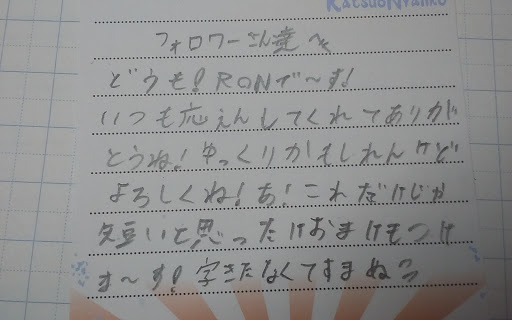 KatsuoNyanko
フォロワーさん達へ
どうも!RONで〜す!
いつも応えんしてくれてありが
とうね!ゆっくりかもしれんけど
よろしくね!あ!これだけじゃ
短いと思ったけおまけもつけ
ま〜す!字きたなくてすまぬう